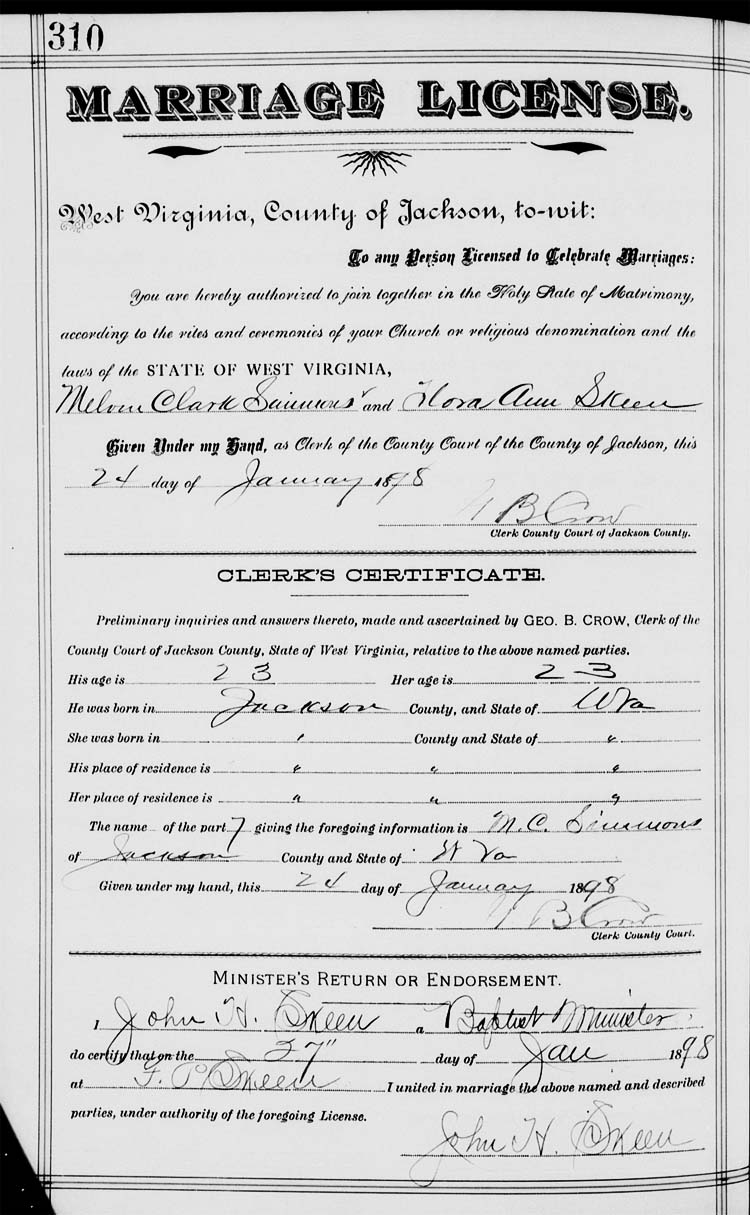 310
MARRIAGE LICENSE.
West Virginia, County of Jackson, to-wit:
To any Person Licensed to Celebrate Marriages:
You are hereby authorized to join together in the Holy State of Matrimony,
according to the rites and ceremonies of your Church or religious denomination and the
laws of the STATE OF WEST VIRGINIA,
Melvin Clark Simmons and Flora Ann Skeen
Given Under my Hand, as Clerk of the County Court of the County of Jackson, this
24 day of January 1898
B Crow
Clerk County Court of Jackson County.
CLERK'S CERTIFICATE.
Preliminary inquiries and answers thereto, made and ascertained by GEO. B. CROW, Clerk of the
County Court of Jackson County, State of West Virginia, relative to the above named parties.
His age is 23 Her age is 23
He was born in Jackson County, and State of WVa
She was born in " County and State of "
His place of residence is " " "
Her place of residence is " " "
The name of the party giving the foregoing information is M. C. Simmons
of Jackson County and State of W Va
Given under my hand, this 24 day of January 1898
B Crow
Clerk County Court.
MINISTER'S RETURN OR ENDORSEMENT.
I John H. Skeen a Baptist Minister
do certify that on the 27" day of Jan 1898
at F. P. Skeen I united in marriage the above named and described
parties, under authority of the foregoing License.
John H. Skeen